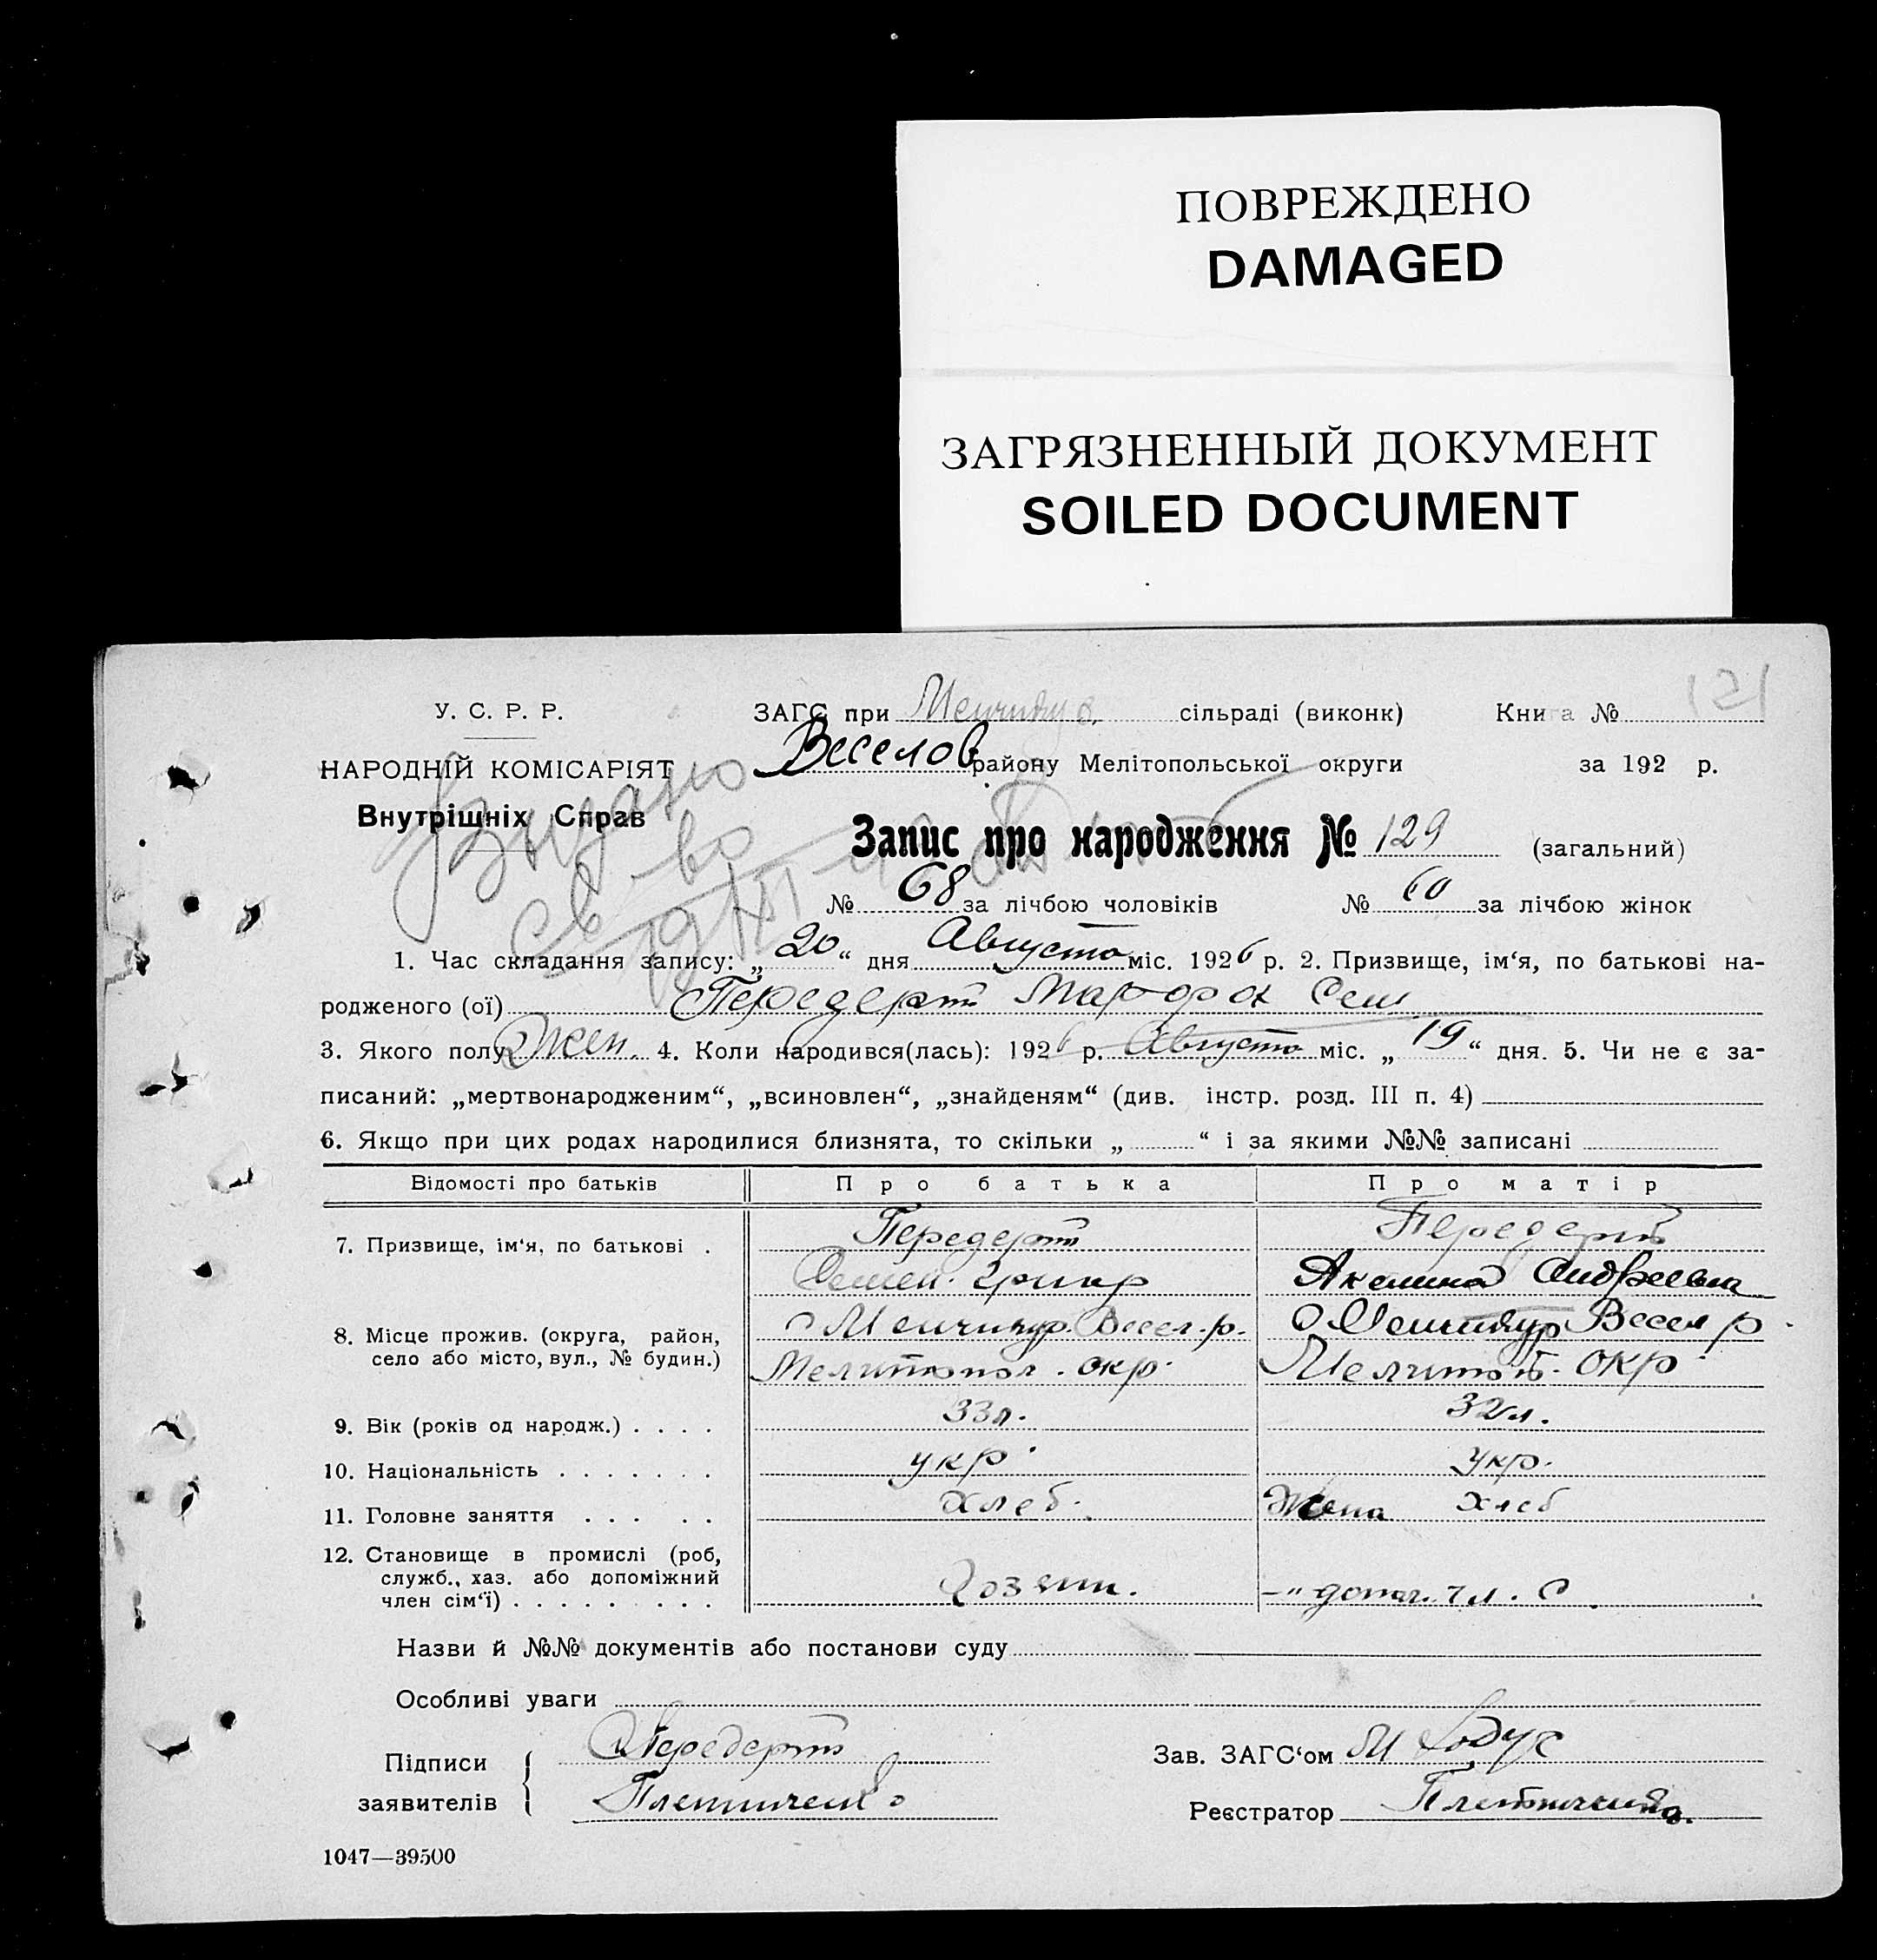 ПОВРЕЖДЕНО
DAMAGED
ЗАГРЯЗНЕННЫЙ ДОКУМЕНТ
SOILED DOCUMENT
121
У. С. Р. Р. ЗАГС при сільраді (виконк) Книга №
НАРОДНІЙ КОМІСАРІЯТ Веселов району Мелітопольської округи за 192 р.
Внутрішніх Справ
Выдано
св во
Запис про народження № 129 (загальний)
№ 68 за лічбою чоловіків № 60 за лічбою жінок
1. Час складання запису: „20“ дня Августа міс. 1926 р. 2. Призвище, ім‘я, по батькові на-
родженого (ої) Передерт Сем
3. Якого полу Жен. 4. Коли народився(лась): 1926 р. Августа міс. „19“ дня. 5. Чи не є за-
писаний: „мертвонародженим“, „всиновлен“, „знайденям“ (див. інстр. розд. III п. 4)
6. Якщо при цих родах народилися близнята, то скільки „ “ і за якими №№ записані
Відомості про батьків Про батька Про матір
7. Призвище, ім‘я, по батькові . Передерт Передерт
Семен. Григр Акелина Андреевна
8. Місце прожив. (округа, район, село або місто, вул., № будин.) Весел. р. Весел р.
Мелитопол. окр. Мелитоп. окр.
9. Вік (років од народж.) . . . . 33 л. 32 л.
10. Національність . . . . . . . укр. укр.
11. Головне заняття . . . . . хлеб. Жена хлеб
12. Становище в промислі (роб,
служб., хаз. або допоміжний
член сім‘ї) . . . . . . . . . хозяин. —"— допом. чл. с
Назви й №№ документів або постанови суду
Особливі уваги
Підписи Передерт Зав. ЗАГС‘ом
заявителів Плетниченко Реєстратор Плетниченко.
1047—39500